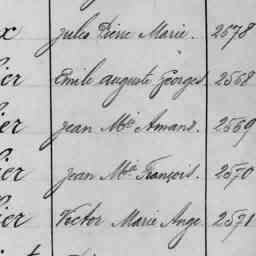 x Jules Pierre Marie. 2578
ier Emile Auguste Georges 2568
ier Jean Mie Amand. 2569
ier Jean Mie François. 2570
ier Victor Marie Ange 2571